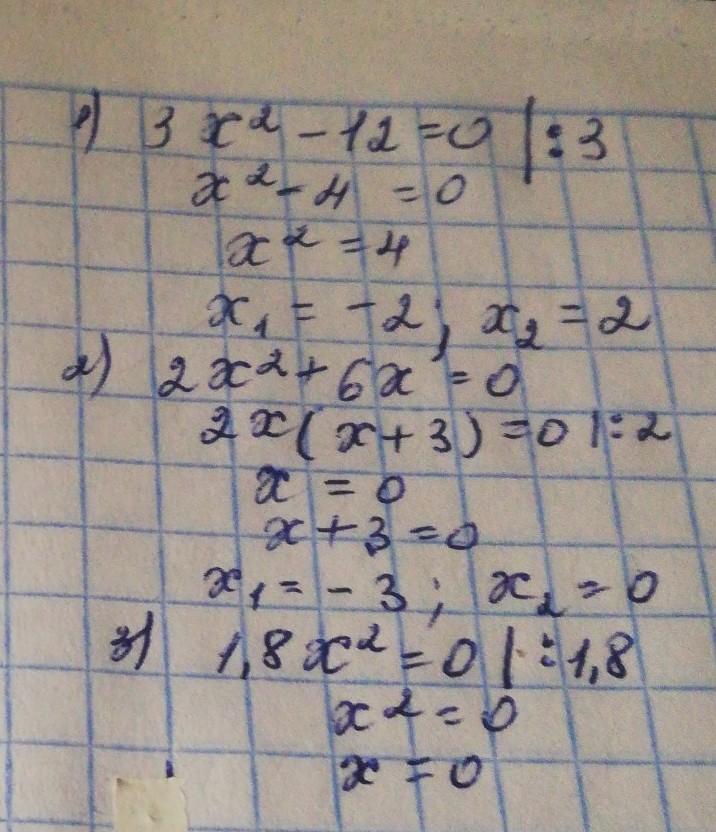 1) 3x² - 12 = 0 | : 3
x² - 4 = 0
x² = 4
x₁ = -2; x₂ = 2
2) 2x² + 6x = 0
2x(x + 3) = 0 | : 2
x = 0
x + 3 = 0
x₁ = -3; x₂ = 0
3) 1,8x² = 0 | : 1,8
x² = 0
x = 0